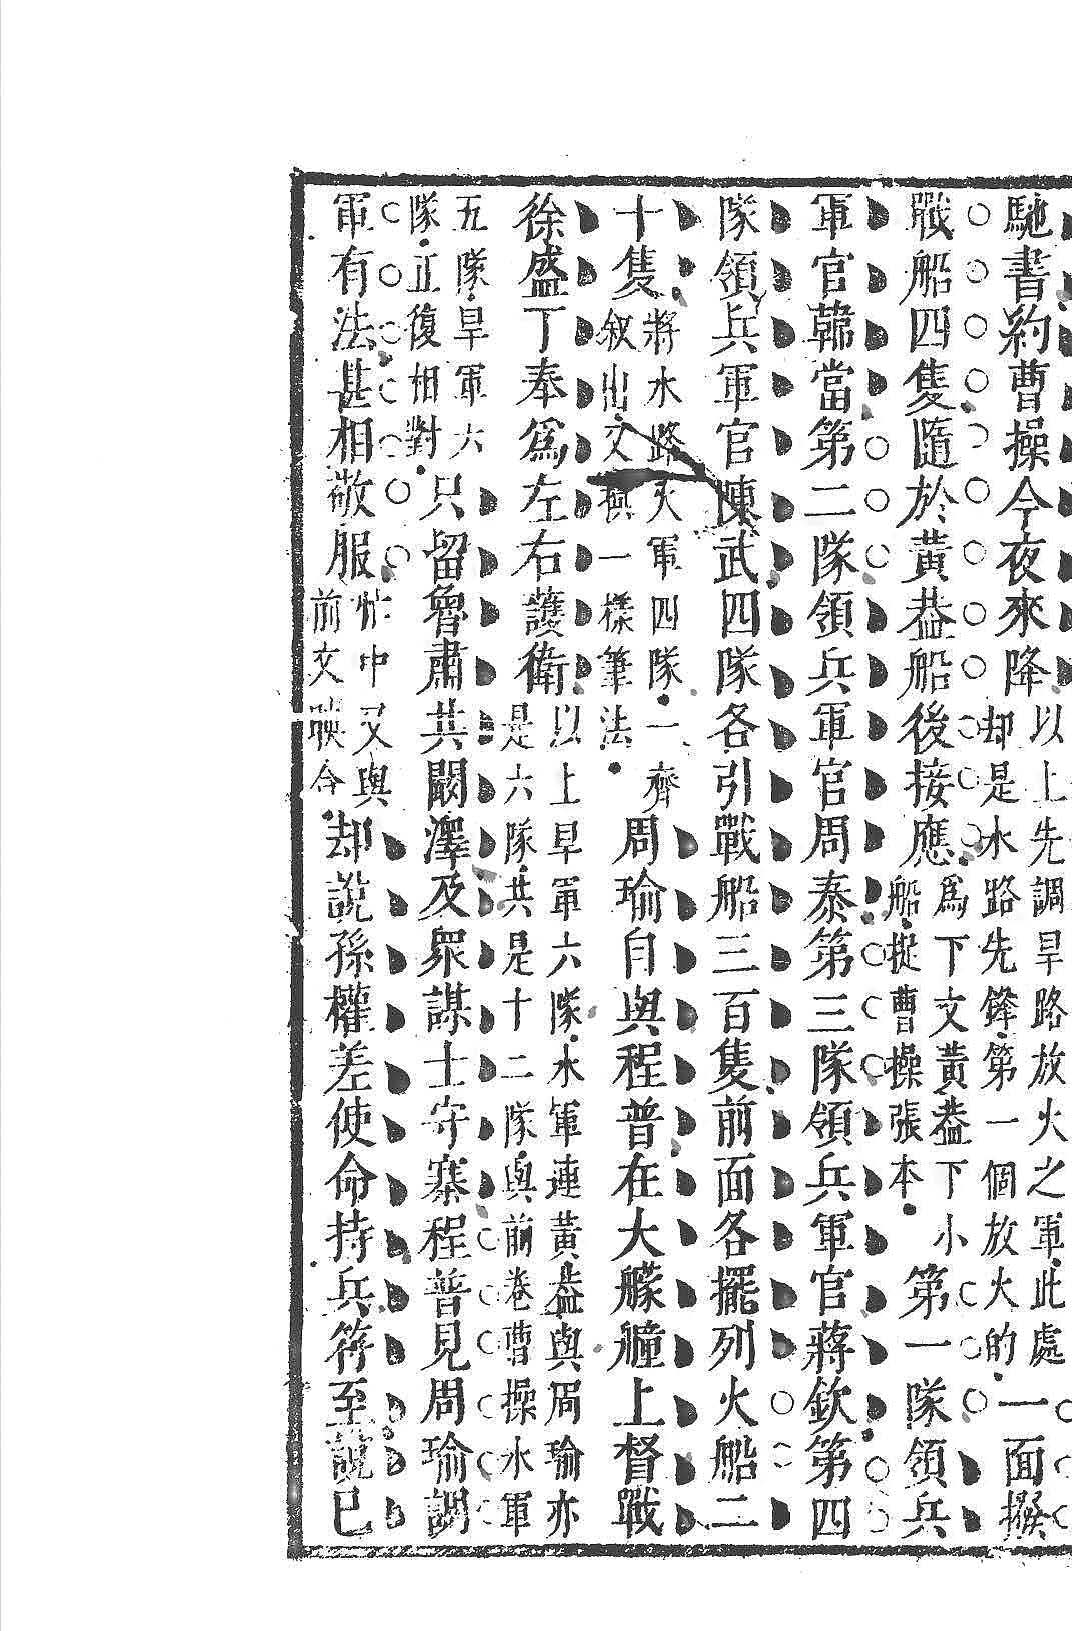 馳書約曹操今夜來降以上先調旱路放火之軍此處却是水路先鋒第一個放火的一面撥
戰船四隻隨於黃葢船後接應爲下文黃葢下小船捉曹操張本第一隊領兵
軍官韓當第二隊領兵軍官周泰第三隊領兵軍官蔣欽第四
隊領兵軍官陳武四隊各引戰船三百隻前面各擺列火船二
十隻將水路火軍四隊一齊叙出又換一樣筆法周瑜自與程普在大艨艟上督戰
徐盛丁奉爲左右護衛以上旱軍六隊水軍連黃葢與周瑜亦是六隊共是十二隊與前卷曹操水軍
五隊旱軍六隊正復相對只留魯肅共闞澤及眾謀士守寨程普見周瑜調
軍有法甚相敬服忙中又與前文映合却說孫權差使命持兵符至說已